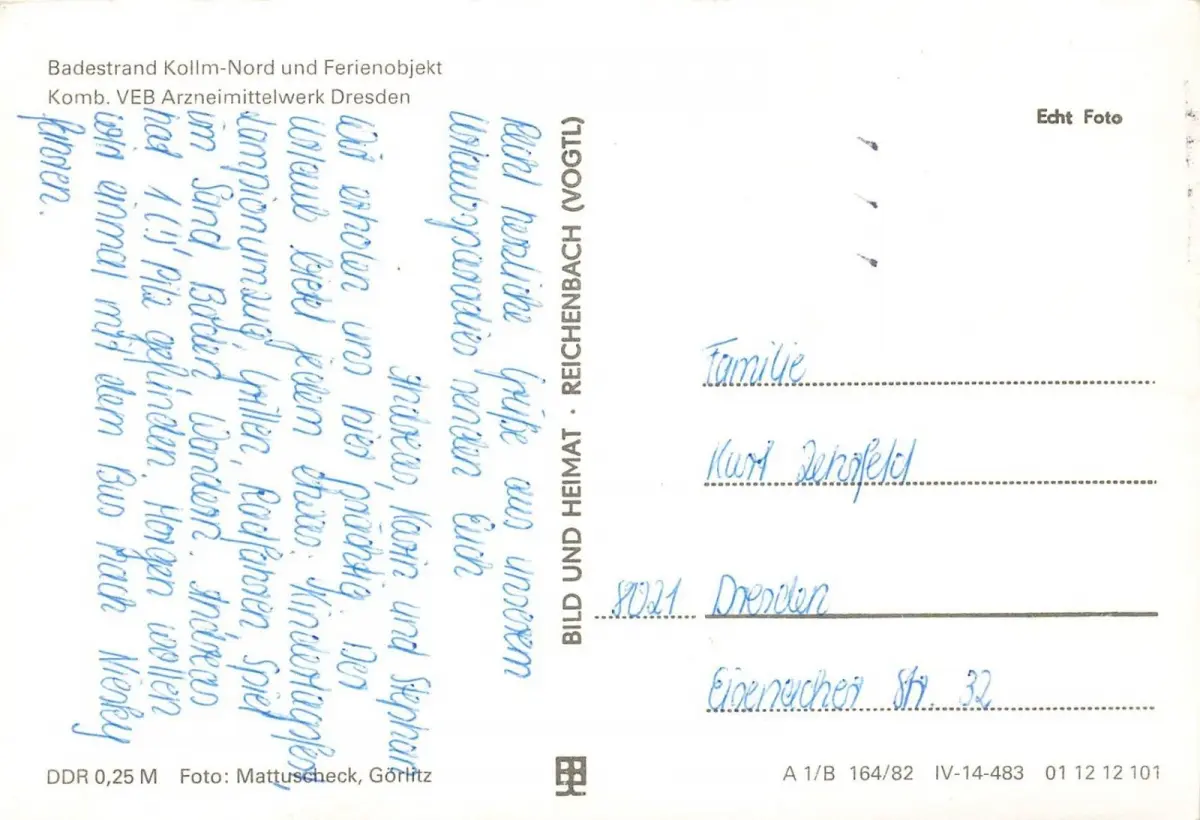 Badestrand Kollm-Nord und Ferienobjekt
Komb. VEB Arzneimittelwerk Dresden
Recht herzliche Grüße aus unserem
Urlaubsparadies senden Euch
Andreas, Karin und Stephan
Wir erholen uns hier prächtig. Der
Urlaub bietet jedem etwas. Kindertagsfest,
Lampionumzug, Grillen, Radfahren, Spiel
im Sand, Baden, Wandern. Andreas
hat 1 (!) Pilz gefunden. Morgen wollen
wir einmal mit dem Bus nach Niesky
fahren.
DDR 0,25 M Foto: Mattuscheck, Görlitz
BILD UND HEIMAT · REICHENBACH (VOGTL)
Echt Foto
Familie
Kurt
8021 Dresden
Eisenacher Str. 32
A 1/B 164/82 IV-14-483 01 12 12 101